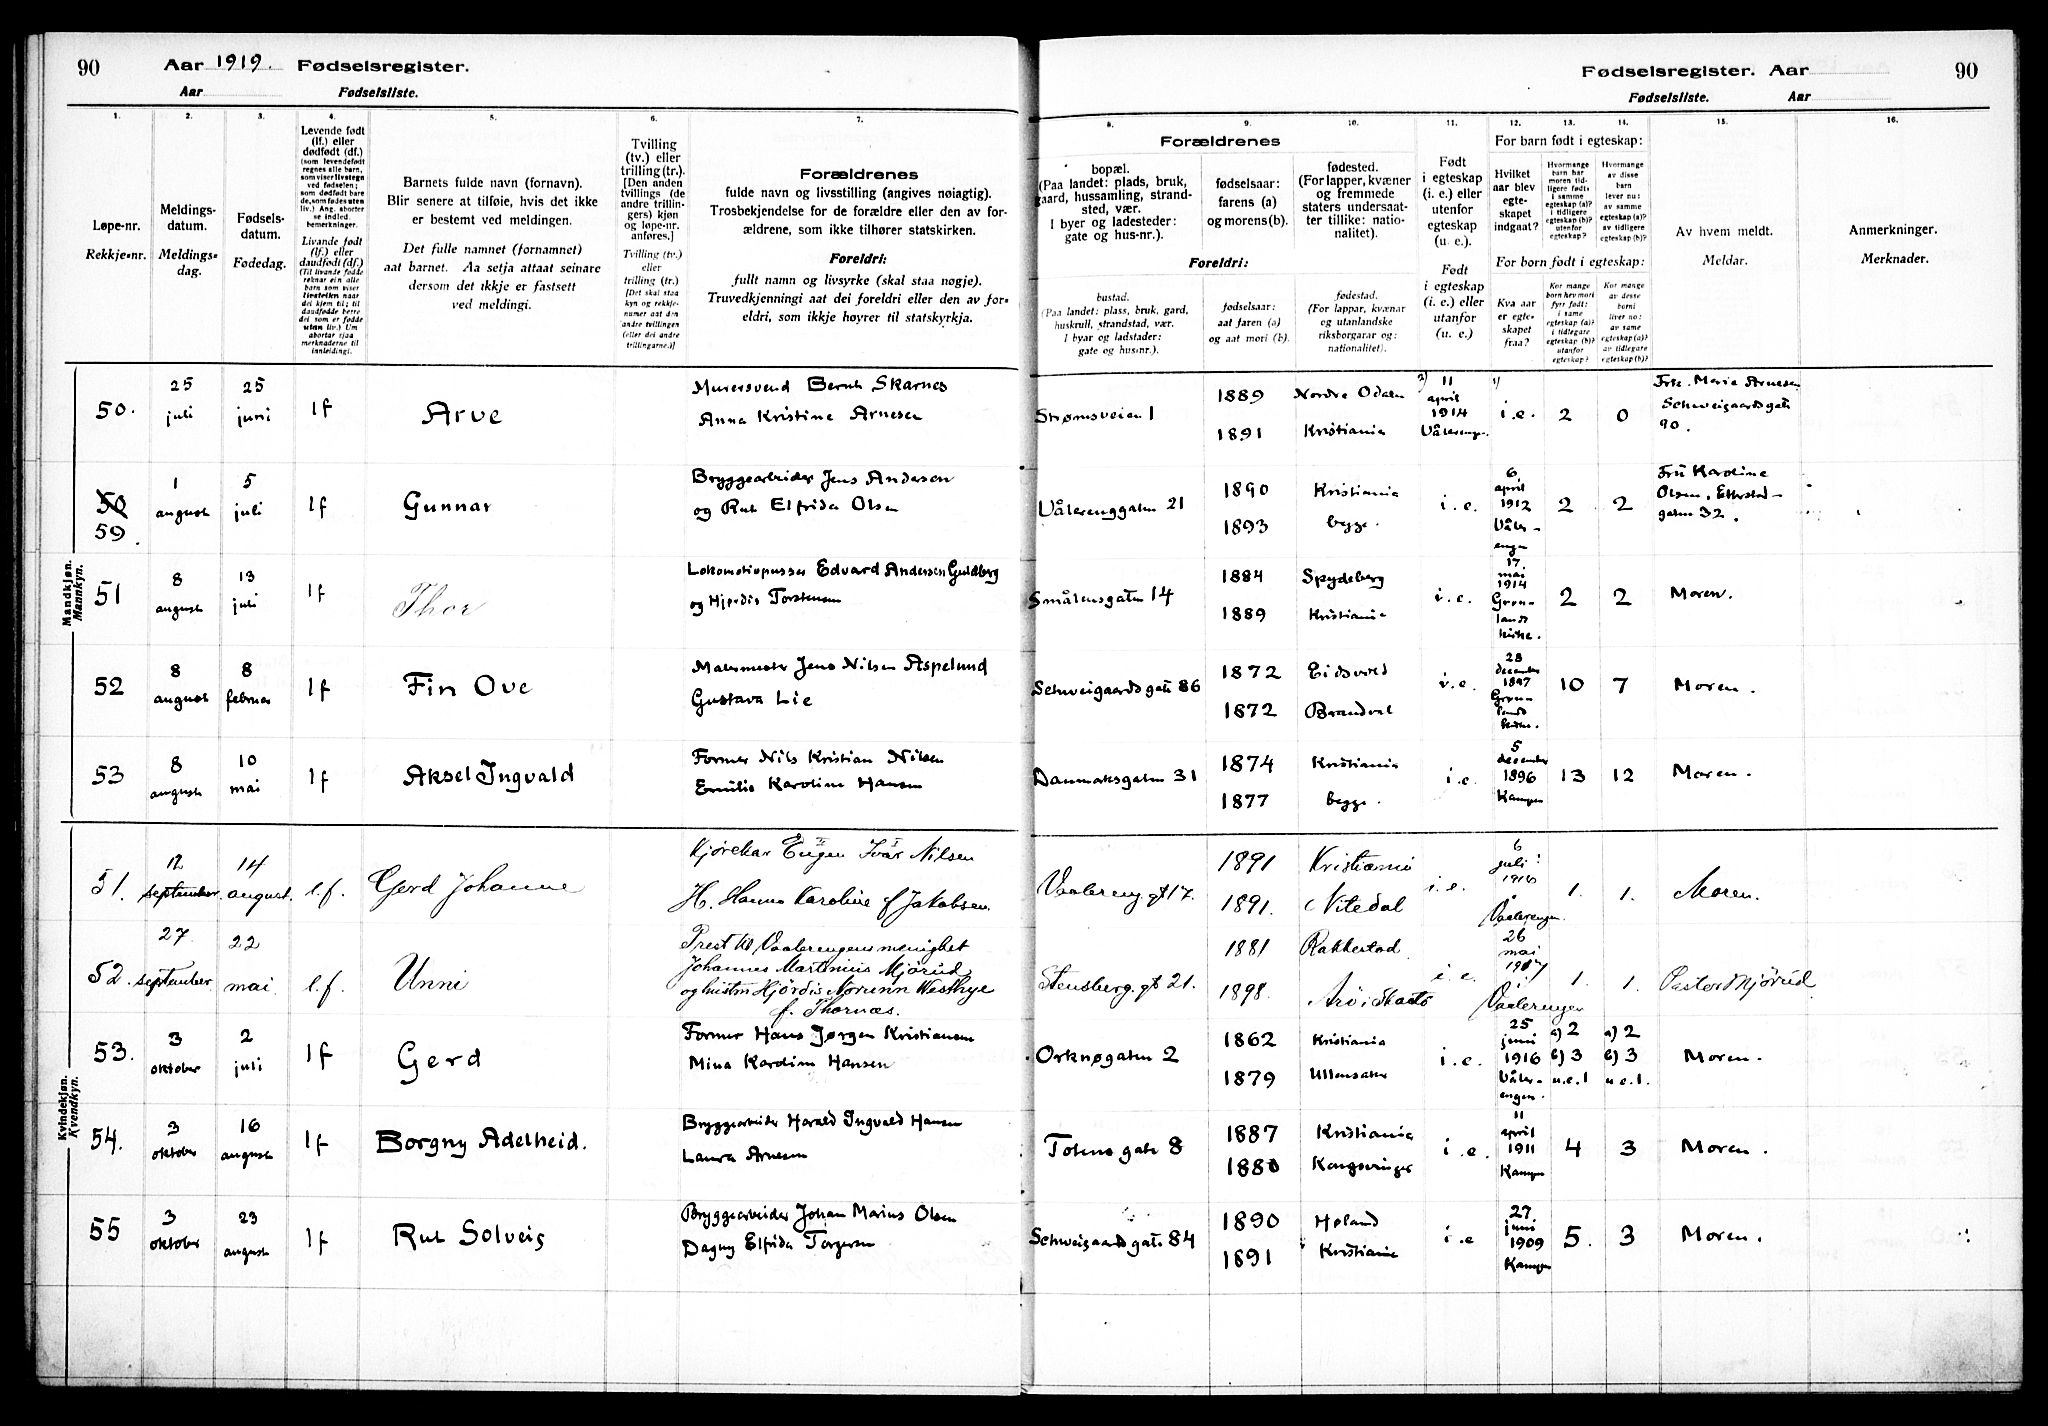 90 Aar 1919. Fødselsregister.
Aar Fødselsliste.
Fødselsregister. Aar 90
Fødselsliste. Aar
1. 2. 3. 4. 5. 6. 7.
Løpe-nr.
Rekkje-nr.
Meldings-
datum.
Meldings-
dag.
Fødsels-
datum.
Fødedag.
Levende født
(lf.) eller
dødfødt (df.)
(som levendefødt
regnes alle barn,
som viser livstegn
ved fødselen;
som dødfødt bare
de, som fødes uten
liv.) Ang. aborter
se indled.
bemerkninger.
Livande fødd
(lf.) eller
daudfødd (df.)
(Til livande fødde
reknar ein alle
born som viser
livsteikn naar
dei kjem til; til
daudfødde berre
dei som er fødde
utan liv.) Um
abortar sjaa
merknaderne til
innleidingi.
Barnets fulde navn (fornavn).
Blir senere at tilføie, hvis det ikke
er bestemt ved meldingen.
Det fulle namnet (fornamnet)
aat barnet. Aa setja attaat seinare
dersom det ikkje er fastsett
ved meldingi.
Tvilling
(tv.) eller
trilling (tr.).
[Den anden
tvillings (de
andre trillin-
gers) kjøn
og løpe-nr.
anføres.]
Tvilling (tv.)
eller
trilling (tr.)
[Det skal staa
kyn og rekkje-
numer aat den
andre tvillingen
(eller dei andre
trillingarne.)]
Forældrenes
fulde navn og livsstilling (angives nøiagtig).
Trosbekjendelse for de forældre eller den av for-
ældrene, som ikke tilhører statskirken.
Foreldri:
fullt namn og livsyrke (skal staa nøgje).
Truvedkjenningi aat dei foreldri eller den av for-
eldri, som ikkje høyrer til statskyrkja.
8. 9. 10. 11. 12. 13. 14. 15. 16.
Forældrenes
bopæl.
(Paa landet: plads, bruk,
gaard, hussamling, strand-
sted, vær.
I byer og ladesteder:
gate og hus-nr.).
fødselsaar:
farens (a)
og morens (b).
fødested.
(For lapper, kvæner
og fremmede
staters undersaat-
ter tillike: natio-
nalitet).
Foreldri:
bustad.
(Paa landet: plass, bruk, gard,
huskrull, strandstad, vær.
I byar og ladstader:
gate og hus-nr.).
fødselsaar:
aat faren (a)
og aat mori (b).
fødestad.
(For lappar, kvænar
og utanlandske
riksborgarar og:
nationalitet).
Født
i egteskap
(i. e.) eller
utenfor
egteskap
(u. e.).
Født
i egteskap
(i. e.) eller
utanfor
(u. e.).
For barn født i egteskap:
Hvilket
aar blev
egte-
skapet
indgaat?
Hvormange
barn har
moren tid-
ligere født:
i samme
egteskap (a)?
i tidligere
egteskap (b)?
utenfor
egteskap?
Hvormange
av disse
barn
lever nu:
av samme
egteskap (a)?
av tidligere
egteskap (b)?
For born født i egteskap:
Kva aar
er egte-
skapet
fraa?
Kor mange
born hev mori
fyrr født:
i same
egteskap (a)?
i tidlegare
egteskap (b)?
utanfor
egteskap?
Kor mange
av desse
borni
liver no:
av same
egteskap (a)?
av tidlegare
egteskap (b)?
Av hvem meldt.
Meldar.
Anmerkninger.
Merknader.
Mandkjøn.
Mannkyn.
50. 25 juli 25 juni lf Arve
Murersvend Bernt Skarnes
Anna Kristine Arnesen
Strømsveien 1 1889 1891 Nordre Odalen Kristiania
2) 11 april 1914 Vålerengen. 1) i.e. 2 0
Frk. Marie Arnesen
Schweigaardsgate
90.
50 59 1 august 5 juli lf Gunnar
Bryggearbeider Jens Andersen
og Rut Elfrida Olsen
Vålerenggaten 21 1890 1893 Kristiania begge. i.e.
6 april 1912 Våler-engen 2 2
Fru Karoline
Olsen, Etterstad-
gaten 32.
51 8 august 13 juli lf Thor
Lokomotivpusser Edvard Andersen Guldberg
og Hjørdis Torstensen
Smålensgaten 14 1884 1889 Spydeberg Kristiania i.e.
17. mai 1914 Grøn-lands kirke. 2 2 Moren.
52 8 august 8 februar lf Fin Ove
Malermester Jens Nilsen Aspelund
Gustava Lie
Schweigaardsgate 86 1872 1872 Eidsvold Brandval i.e.
28 december 1897 Grøn-lands kirke. 10 7 Moren.
53 8 august 10 mai lf Aksel Ingvald
Former Nils Kristian Nilsen
Emilie Karoline Hansen
Danmarksgaten 31 1874 1877 Kristiania begge. i.e.
5 december 1896 Kampen 13 12 Moren.
Kvindekjøn.
Kvendkyn.
51. 12 september 14 august. l.f. Gerd Johanne
Kjørekar Eugen Ivar Nilsen
H. Hanna Karoline f Jakobsen.
Vaalereng.gt 17. 1891 1891. Kristiania Nitedal i.e.
6 juli Vaalerengen. 1. 1. Moren.
52. 27. september 22 mai l.f. Unni
Prest til Vaalerengens menighet
Johannes Martinius Mjørud
og hustru Hjørdis Norunn Westbye
f. Thornæs.
Stensberg.gt 21. 1881 1898. Rakkestad i.e.
26 mai 1917 Vaalerengen 1. 1. Pastor Mjørud.
53. 3 oktober 2 juli lf Gerd
Former Hans Jørgen Kristiansen
Mina Karoline Hansen
Orknøgaten 2 1862 1879 Kristiania Ullensaker i.e.
25 juni 1916 Våler-engen. a) 2 b) 3 u.e. 1 a) 2 b) 3 u.e. 1. Moren.
54. 3 oktober 16 august lf Borgny Adelheid.
Bryggearbeider Harald Ingvald Hansen
Laura Arnesen
Totens gate 8 1887 1880 Kristiania Kongsvinger i.e.
11 april 1911 Kampen 4 3 Moren.
55 3 oktober 23 august lf Rut Solveig
Bryggearbeider Johan Marius Olsen
Dagny Elfrida Torgersen
Schweigaardsgate 84 1890 1891 Høland Kristiania i.e
27 juni 1909 Kampen 5. 3 Moren.